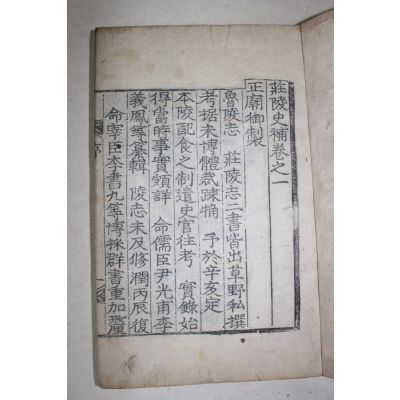 莊陵史補卷之一
正廟御製
魯陵志 莊陵志二書皆出草野私撰
考据未博體裁踈桷 予於辛亥定
本陵配食之制遣史官往考 實錄始
得當時事實頗詳 命儒臣尹光甫李
義鳳等纂輯 陵志未及修潤丙辰復
命宰臣李書九等博採群書重加釐
序